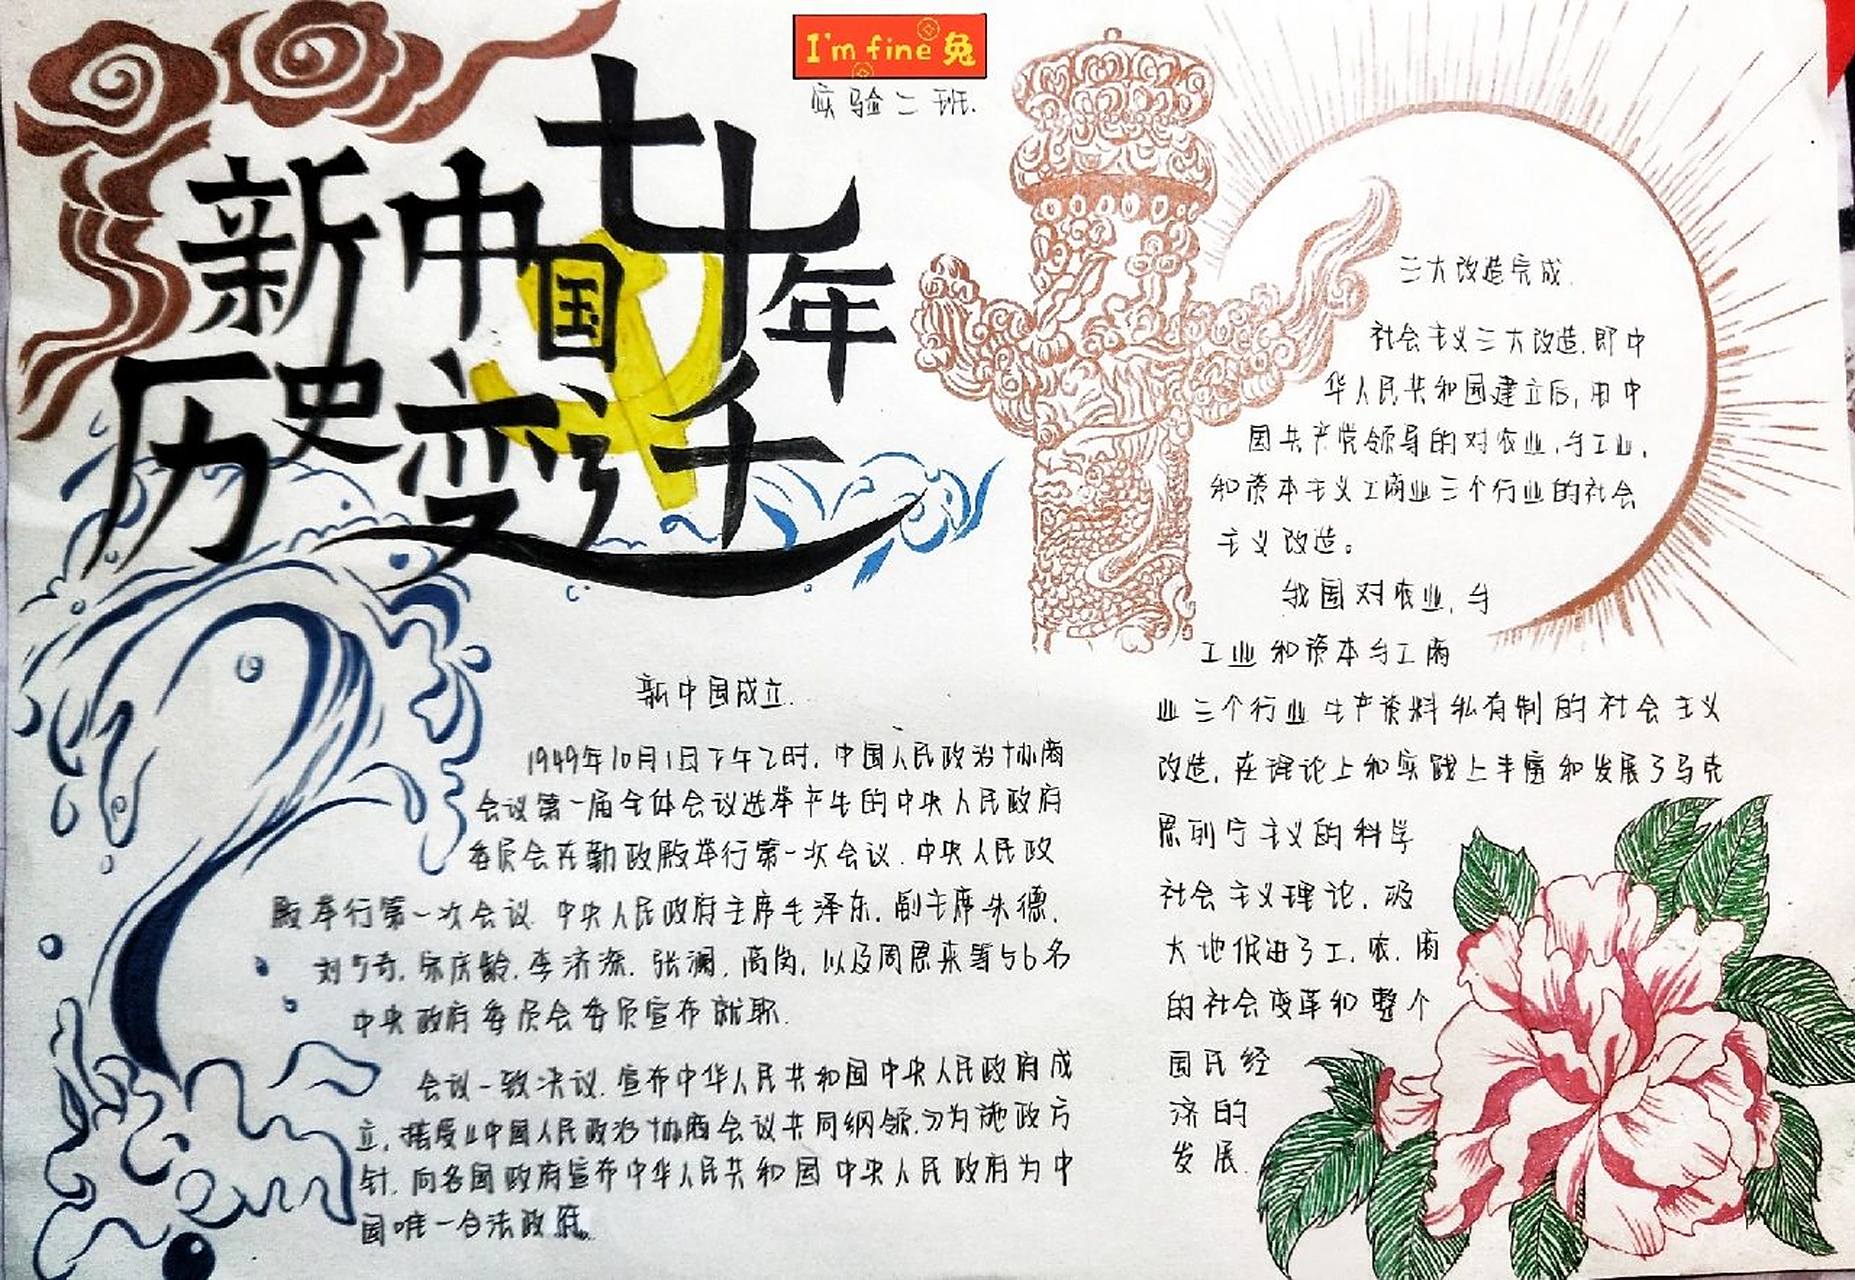 I'm fine 兔
实验二班.
新中国七十年
历史变迁
新中国成立.
1949年10月1日下午2时,中国人民政治协商
会议第一届全体会议选举产生的中央人民政府
委员会在勤政殿举行第一次会议.中央人民政
殿举行第一次会议.中央人民政府主席毛泽东,副主席朱德,
刘少奇,宋庆龄,李济深,张澜,高岗,以及周恩来等56名
中央政府委员会委员宣布就职.
会议一致决议.宣布中华人民共和国中央人民政府成
立,接受以中国人民政治协商会议共同纲领为施政方
针,向各国政府宣布中华人民共和国中央人民政府为中
国唯一合法政府。
三大改造完成.
社会主义三大改造,即中
华人民共和国建立后,由中
国共产党领导的对农业,手工业,
和资本主义工商业三个行业的社会
主义改造。
我国对农业,手
工业和资本手工商
业三个行业生产资料私有制的社会主义
改造,在理论上和实践上丰富和发展了马克
思列宁主义的科学
社会主义理论,极
大地促进了工,农,商
的社会变革和整个
国民经
济的
发展.